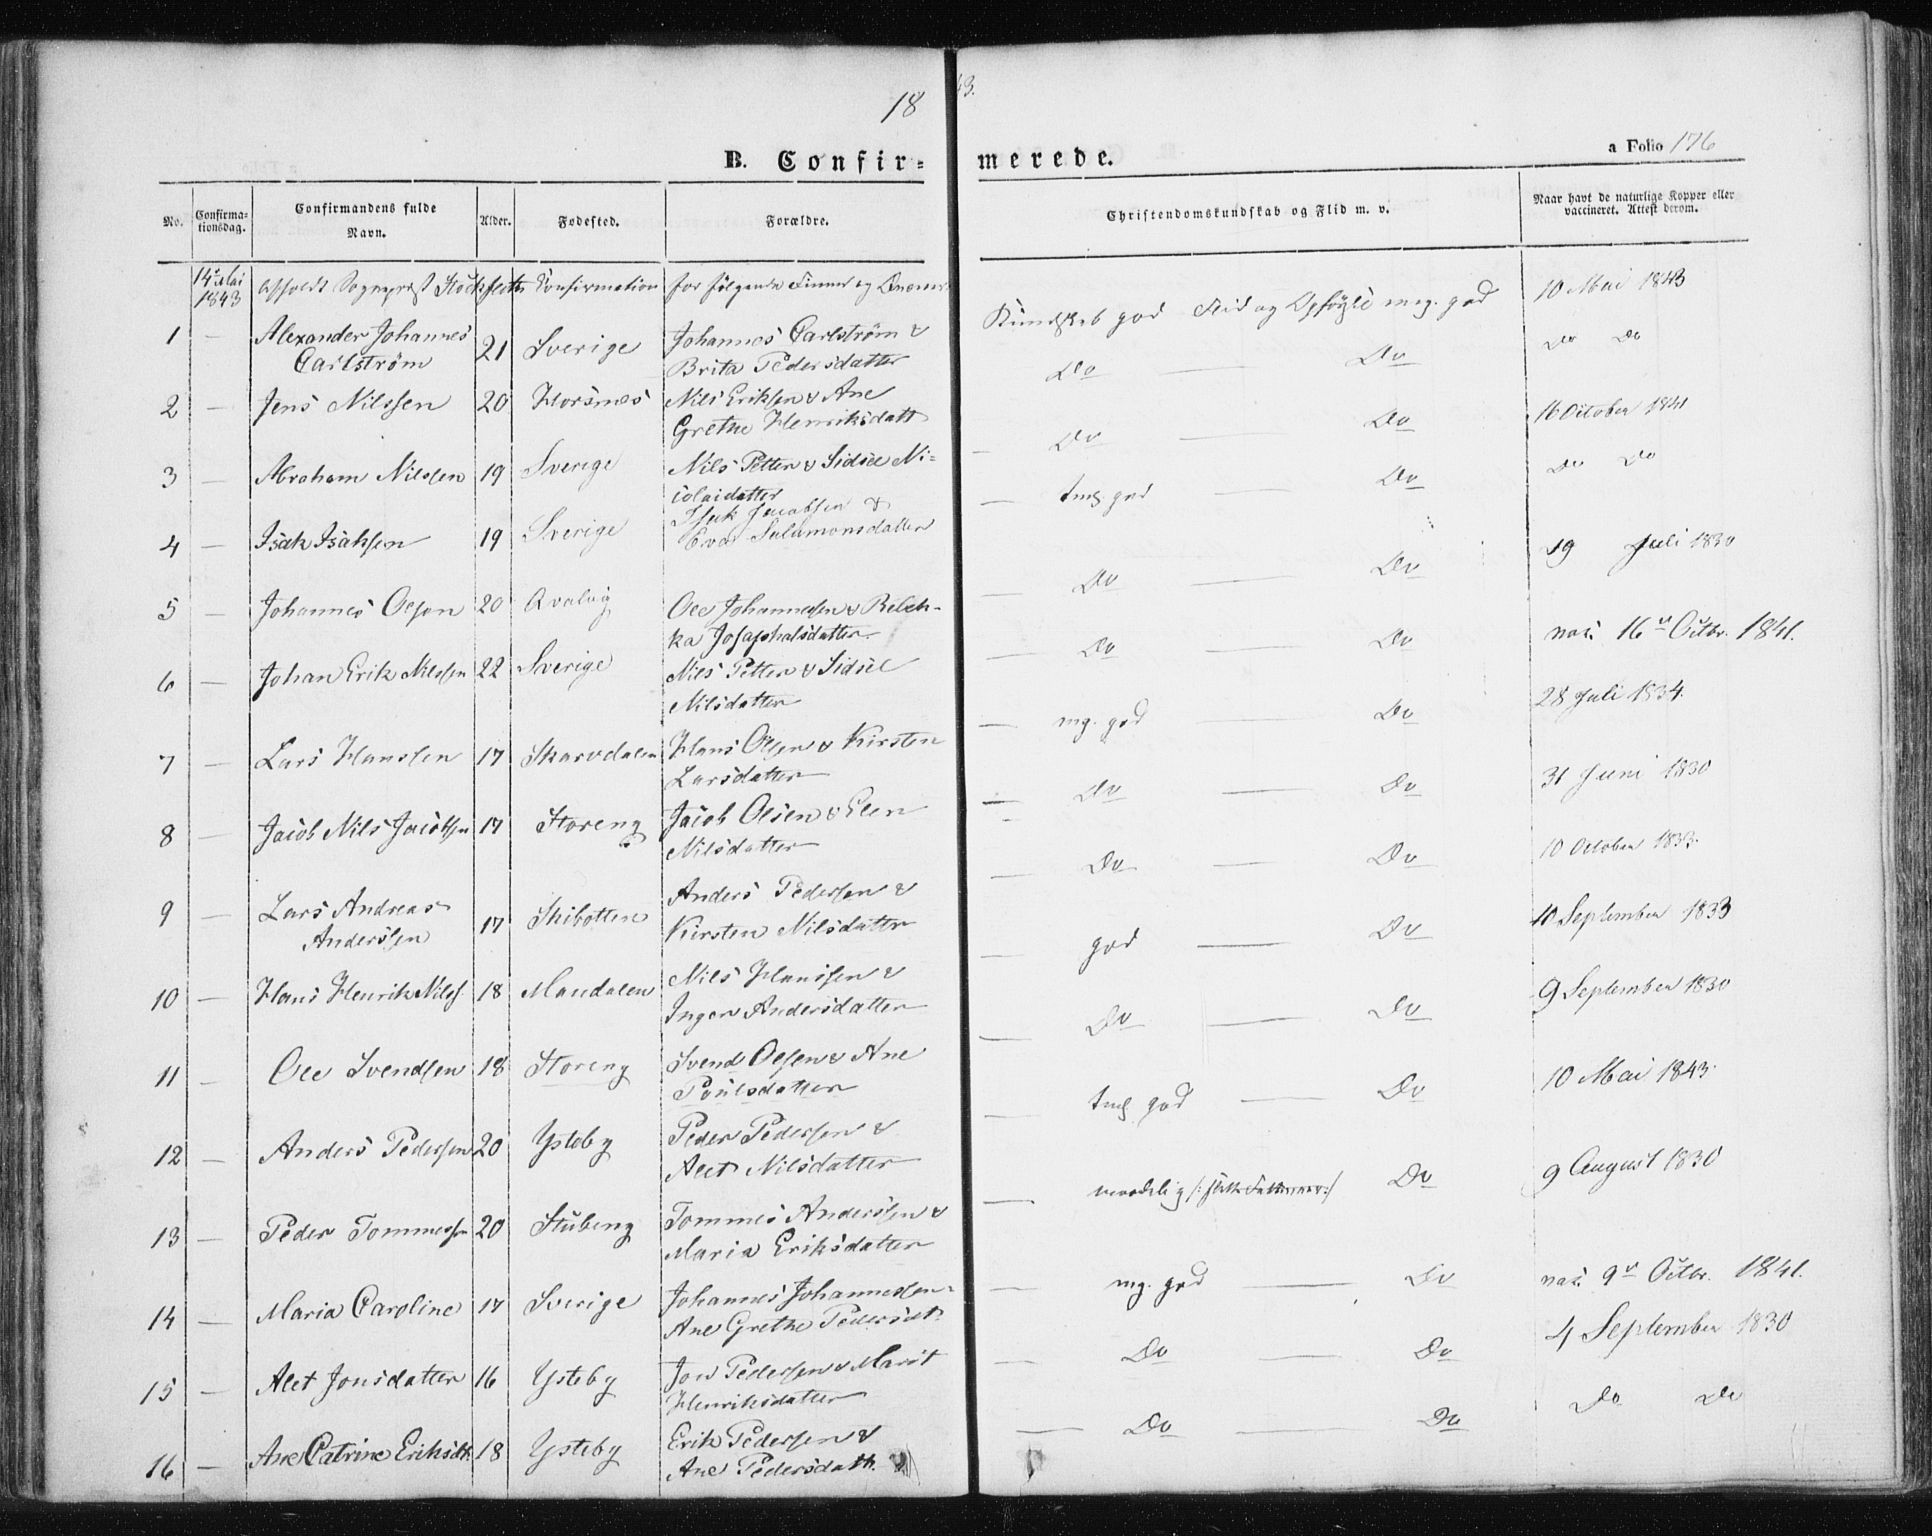 1843.
B. Confirmerede.
a Folio 176
No.
Confirmationsdag.
Confirmandens fulde Navn.
Alder.
Fødested.
Forældre.
Christendomskundskab og Flid m. v.
Naar havt de naturlige Kopper eller vaccineret. Attest derom.
14de Mai 1843 afholdt Sognepræst Stockfleth Confirmation for følgende Finner og Qvæner
1 — Alexander Johannes Carlström 21 Sverige Johannes Carlström & Brita Pedersdatter Kundskab god Flid og Opførsel meg. god 10 Mai 1843
2 — Jens Nilssen 20 Horsnes Nils Eriksen & Ane Grethe Henriksdatt Do — Do Do Do
3 — Abraham Nilssen 19 Sverige Nils Petter & Sidsel Nicolaidatter — Do — Do 16 October 1841
4 — Isak Isaksen 19 Sverige Isak Jacobsen & Eva Salamonsdatter — tmel god — Do Do Do
5 — Johannes Olson 20 Qvalvig Ole Johannesen & Rebekka Josaphatsdatter — Do — Do 19 Juli 1830
6 — Johan Erik Nilssen 22 Sverige Nils Petter & Sidsel Nilsdatter — Do — Do vac. 16de Octbr. 1841.
7 — Lars Hanssen 17 Skarvdalen Hans Olsen & Kirsten Larsdatter — mg. god — Do 28 Juli 1834.
8 — Jacob Nils Jacobsen 17 Storeng Jacob Olsen & Elen Nilsdatter — Do — Do 31 Juni 1830
9 — Lars Andreas Anderssen 17 Skibotten Anders Pedersen & Kirsten Nilsdatter — Do — Do 10 October 1833.
10 — Hans Henrik Nilss. 18 Mandalen Nils Hanssen & Inger Andersdatter — god — Do 10 September 1833
11 — Ole Svendsen 18 Storeng Svend Olsen & Ane Poulsdatter — Do — Do 9 September 1830
12 — Anders Pedersen 20 Ysteby Peder Pedersen & Alet Nilsdatter — tmel god — Do 10 Mai 1843.
13 — Peder Tommessen 20 Stubeng Tommes Anderssen & Maria Eriksdatter — maadelig Do 9 August 1830
14 — Maria Caroline 17 Sverige Johannes Johannessen & Ane Grethe Pedersdt. — mg. god — Do vac. 9de Octbr. 1841.
15 — Alet Jonsdatter 16 Ysteby Jon Pedersen & Marit Henriksdatter — Do — Do 4 September 1830
16 — Ane Catrine Eriksdtt. 18 Ysteby Erik Pedersen & Ane Pedersdatt. — Do — Do Do Do